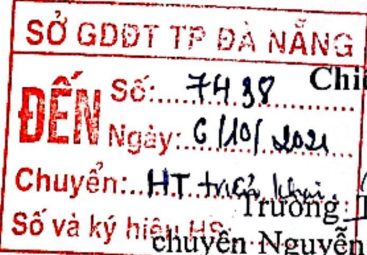 SỞ GDĐT TP ĐÀ NẴNG
ĐẾN
Số: 7438
Chi
Ngày: 6/10/2021
Chuyển: HT triển khai.
Trường T
Số và ký hiệu HS
chuyên Nguyễn